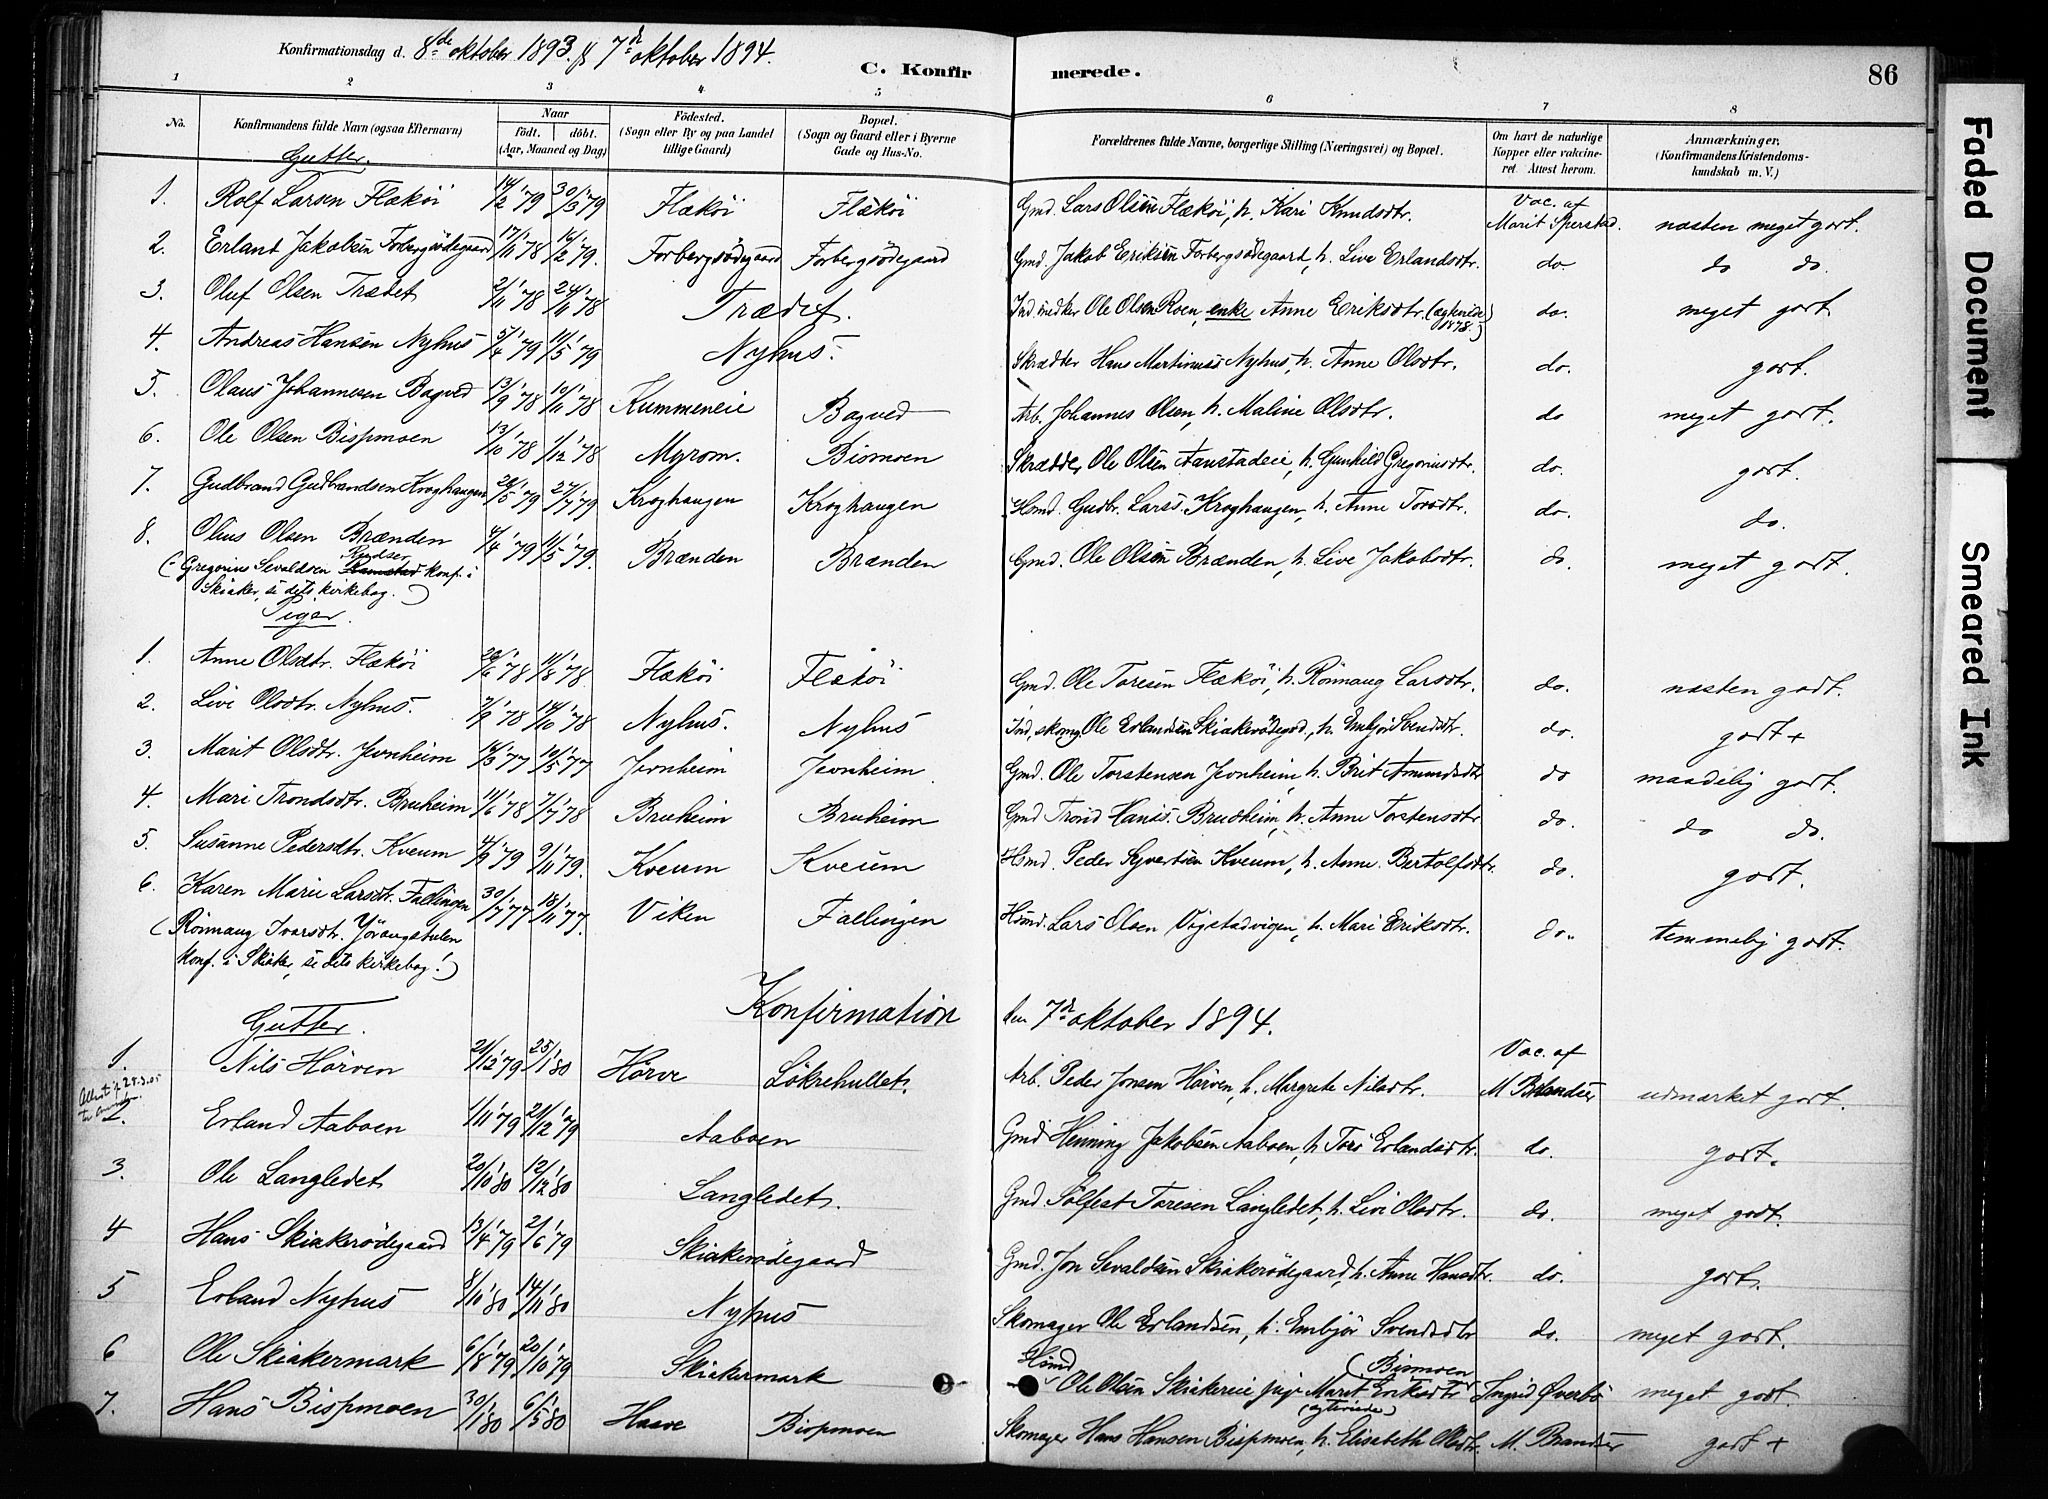 Konfirmationsdag d. 8de oktober 1893. & 7de oktober 1894.
C. Konfirmerede. 86
1 2 3 4 5 6 7 8
No. Konfirmandens fulde Navn (ogsaa Efternavn) Naar födt. döbt. (Aar, Maaned og Dag) Födested. (Sogn eller By og paa Landet tillige Gaard) Bopæl. (Sogn og Gaard eller i Byerne Gade og Hus-No. Forældrenes fulde Navne, borgerlige Stilling (Næringsvei) og Bopæl. Om havt de naturlige Kopper eller vaccineret. Attest herom. Anmærkninger. (Konfirmandens Kristendomskundskab m. V.)
Gutter.
1. Rolf Larsen Flækøi 14/2 '79 30/3 '79 Flækøi Flækøi Gmd. Lars Olsen Flækøi, h. Kari Knudsdtr. Vac. af Marit Sperstad. næsten meget godt.
2. Erlant Jakobsen Forbergsödegaard 17/11 '78 16/2 '79. Forbergsödegaard Forbergsödegaard Gmd. Jakob Eriksen Forbergsödegaard, h. Live Erlandsdtr. do do do.
3. Oluf Olsen Trædet 2/11 '78 24/11 '78 Trædet. Ind. snedker Ole Olsen Roen, enke Anne Eriksdtr. (ægteviede 1878.) do. meget godt
4. Andreas Hansen Nyhus 5/4 '79 11/5 '79 Nyhus. Skrædder Hans Martinius Nyhus, h. Anne Olsdtr. do. godt.
5. Olaus Johannesen Bagved 13/9 '78 10/11 '78 Kummeneie Bagved Arb. Johannes Olsen, h. Maline Olsdtr. do meget godt.
6. Ole Olsen Bispmoen 13/10 '78 1/12 '78 Myrom. Bismoen Skrædder Ole Olsen Aanstadeie, h. Gunhild Gregoriusdtr. do. godt.
7. Gudbrand Gudbrandsen Kroghaugen 28/5 '79 27/7 '79 Kroghaugen Kroghaugen Hsmd. Gudbr. Larss. Kroghaugen, h. Anne Torsdtr. do. do.
8. Olius Olsen Brænden 4/4 '79 11/5 '79. Brænden Brænden Gmd. Ole Olsen Brænden, h. Live Jakobsdtr. do. meget godt.
(: Gregorius Sevaldsen Ramstad konf. i
Skiaker, se dets kirkebog. )
Piger.
1. Anne Olsdtr. Flækøi 20/6 '78 11/8 '78. Flækøi Flækøi Gmd. Ole Toresen Flækøi, h. Rönnaug Larsdtr. do. næsten godt.
2. Live Olsdtr. Nyhus. 7/9 '78 14/10 '78 Nyhus. Nyhus Ind. skomg. Ole Erlandsen Skiakerödegrd., h. Embjör Svendsdtr. do. godt +
3. Marit Olsdtr. Jevnheim 16/3 '77 10/5 '77 Jevnheim Jevnheim Gmd. Ole Torstensen Jevnheim, h. Brit Amundsdtr do maadelig godt.
4. Mari Trondsdtr. Bruheim 11/6 '78 7/7 '78 Bruheim Bruheim Gmd Trond Hanss. Brudheim, h. Anne Torstensdtr do. do do.
5. Susanne Pedersdtr. Kveum 4/9 '79 9/11 '79. Kveum Kveum Hsmd. Peder Syvertsen Kveum, h. Anne Bertolfsdtr. do. godt.
6. Karen Marie Larsdtr. Fallingen 30/7 '77 18/11 '77. Viken Fallingen Hsmd. Lars Olsen Vigstadvigen, h. Mari Eriksdtr. do. temmelig godt.
( Rönnaug Ivarsdtr. Jörangstulen
konf. i Skiaker, se dets kirkebog!)
Konfirmation den 7de oktober 1894.
Gutter.
1. Nils Hörven 21/12 '79 25/1 '80 Hörve Lökrehullet. Arb. Peder Jonsen Hörven, h. Margrete Nilsdtr. Vac. af M. Brandser udmærket godt.
2. Erland Aaboen 1/11 '79 21/12 '79 Aaboen Gmd. Henning Jakobsen Aaboen, h. Tore Erlandsdtr. do. godt.
3. Ole Langledet 20/10 '80 12/12 '80 Langledet. Gmd. Sölfest Toresen Langledet, h. Live Olsdtr. do. meget godt.
4 Hans Skiakerödegaard 13/4 '79 2/6 '79 Skiakerödegaard Gmd. Jon Sevaldsen Skiakerödegaard, h. Anne Hansdtr. do. godt.
5 Erland Nyhus 8/10 '80 14/11 '80 Nyhus Skomager Ole Erlandsen, h. Embjör Svendsdtr do. meget godt.
6 Ole Skiakermark 6/8 '79 20/10 '79 Skiakermark Hsmd Ole Olsen Skiakereie pige Marit Eriksdtr (Bismoen (ugteviede) Ingrid Øverbö meget godt.
7. Hans Bispmoen 30/1 '80 6/5 '80 Haave Bispmoen Skomager Hans Hansen Bispmoen, h. Elisabeth Olsdtr. M. Brandser godt +
Faded Document
Smeared Ink